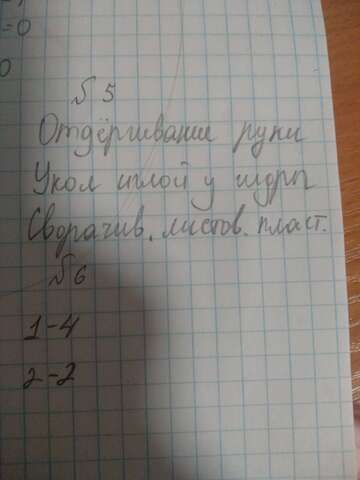 =0
0
№ 5
Отдёргивание руки
Укол иглой у гидры
Сворачив. листов. пласт.
№6
1-4
2-2